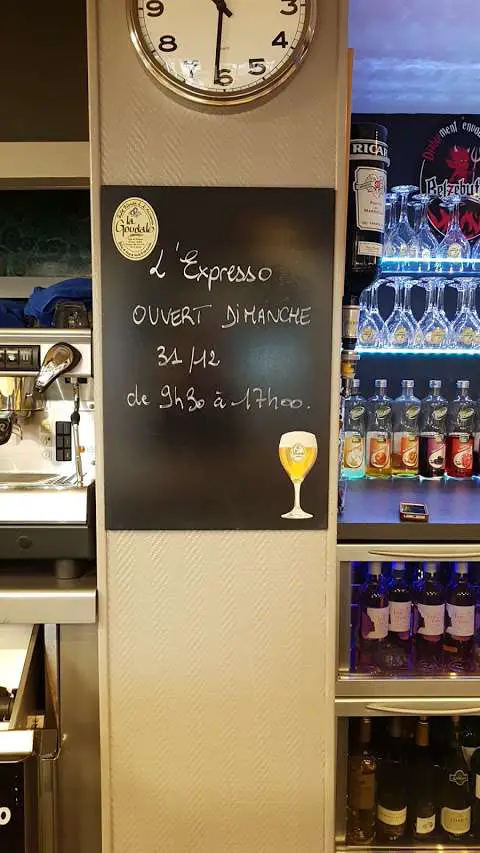 9
3
8
4
7
6
5
la
Goudale
L'Expresso
OUVERT DIMANCHE
31/12
de 9h30 à 17h00.
RICAR
Belzebut